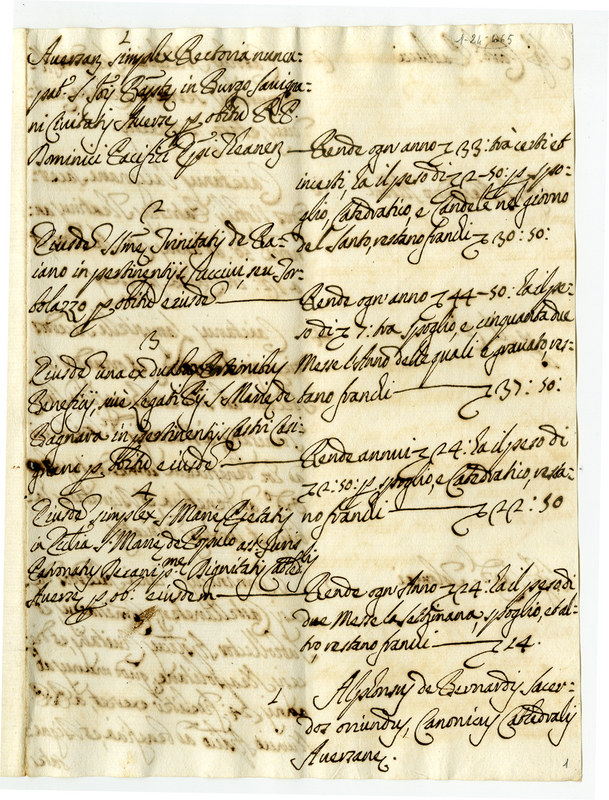 1-24-1865
1
Averzan simplex Rectoria nuncu-
pat. S. Joi Bapta in Burgo Savigna-
ni Civitatis Averze p obitu RR.
Dominici Pacifici
Rende ogn anno z 33: trà certi et
incerti, hà il peso di z 2-50: p spo-
glio, Catedratico, e Candele nel giorno
del Santo, restano franchi z 30: 50:
2
Eiusde SSme Trinitatis de
in pertinentijs seu Tor-
bolazzo p obitu eiusde
Rende ogn anno z 44-50: hà il pe-
so di z 7: trà spoglio, e cinquanta due
Messe l'Anno delle quali è gravato, res-
tano franchi z 37: 50:
3
Eiusde una ex duabus
Beneficij, sive Legati S. Marie de
Bagnara in pertinentijs Castri
p obitu eiusde
Rende annui z 24: hà il peso di
z 2:50: p spoglio, e Catedratico, resta-
no franchi z 22: 50
4
Eiusde simplex S. Marie Pietatis
in S. Marie de Populo Juris
Patronatus Decani pme Dignitatis Cated
Averze p ob: eiusdem
Rende ogn Anno z 24: hà il peso di
due Messe la settimana, spoglio, et al-
tro, restano franchi z 14.
Alphonsus de Bernardis Sacer-
dos oriundus, Canonicus Cathedralis
Averzane.
1
1